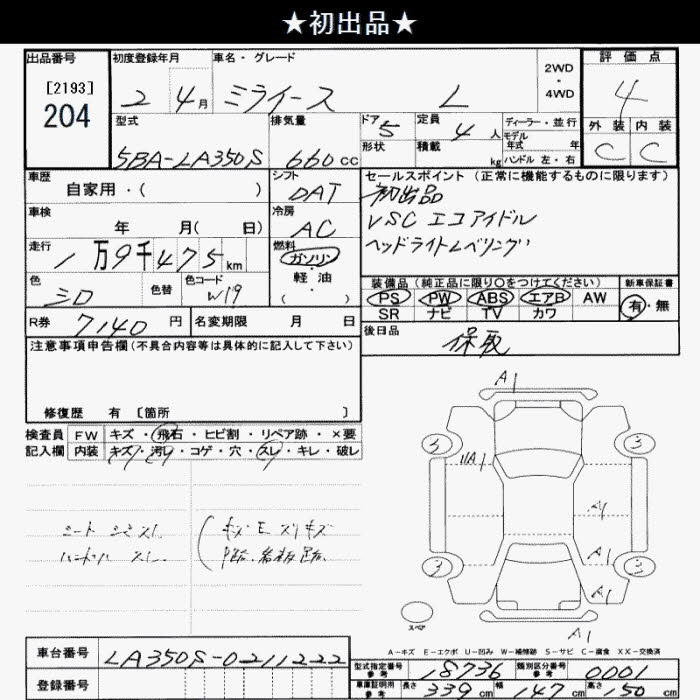 ★初出品★
出品番号
[2193]
204
初度登録年月
2 4月
車名・グレード
ミライース L
2WD
・
4WD
評価点
4
外装 内装
C C
型式
5BA-LA350S
排気量
660cc
ドア 5
形状
定員 4人
積載 kg
ディーラー・並行
モデル年式 年
ハンドル 左・右
車歴
自家用・( )
シフト
DAT
セールスポイント(正常に機能するものに限ります)
初出品
VSC エコアイドル
ヘッドライトレベリング
車検
年 月( 日)
冷房
AC
走行
1万9千475km
燃料
ガソリン
・
軽油
( )
色
シロ
色替
色コード
W19
装備品(純正品に限り○をつけてください)
PS PW ABS エアB AW
SR ナビ TV カワ
新車保証書
有・無
R券 7140円
名変期限 月 日
後日品
保取
注意事項申告欄(不具合内容等は具体的に記入して下さい)
修復歴 有 [箇所 ]
検査員記入欄
FW キズ・飛石・ヒビ割・リペア跡・×要
内装 キズ・汚レ・コゲ・穴・スレ・キレ・破レ
シート シミ スレ
ハンドル スレ
A1
3
3
A1
A1
3
3
A1
A1
A1
スペア
A-キズ E-エクボ U-凹み W-補修跡 S-サビ C-腐食 XX-交換済
車台番号
LA350S-0211222
登録番号
型式指定番号
参考
18736
類別区分番号
参考
0001
車庫証明用
参考
長さ 339cm
幅 147cm
高さ 150cm